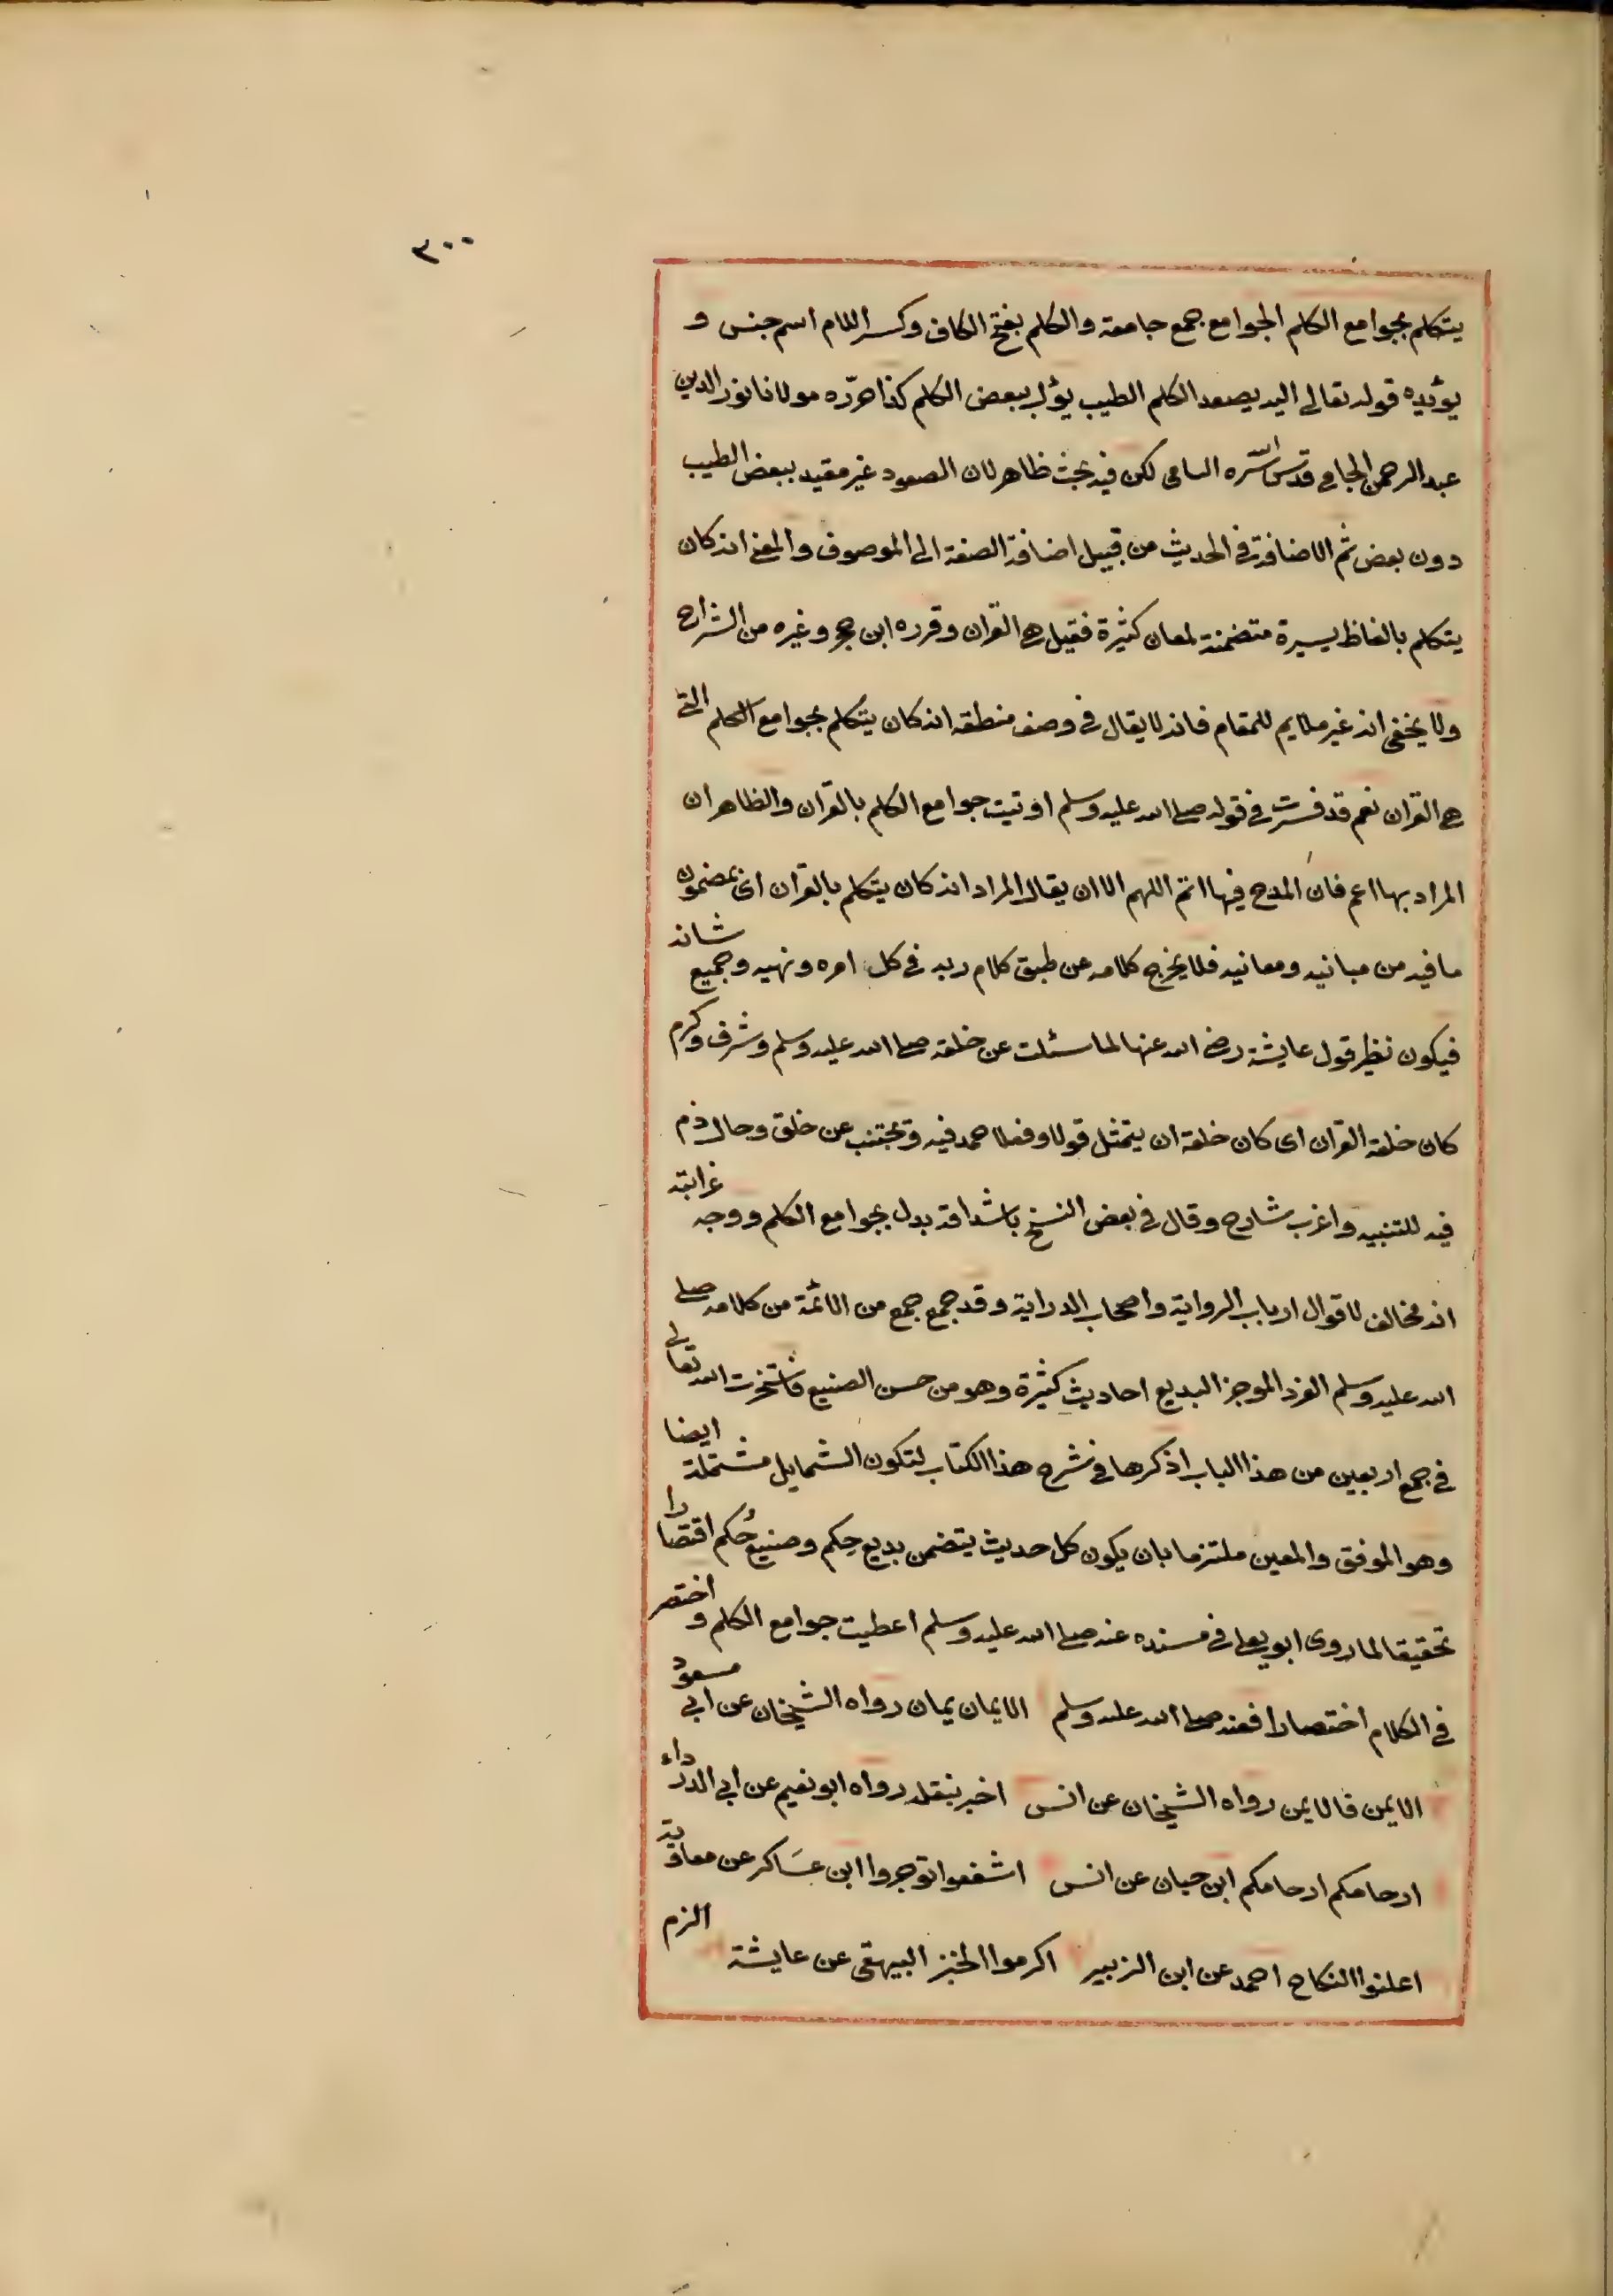 ٣٠٠
يتكلم بجوامع الكلم الجوامع جمع جامعة والكلم بفتح الكاف وكسر اللام اسم جنس و
يؤيده قوله تعالى اليه يصعد الكلم الطيب يؤل ببعض الكلم كذا حرّره مولانا نور الدين
عبد الرحمن الجامي قدس الله سره السامي لكن فيه بحث ظاهر لان الصعود غير مقيد ببعض الطيب
دون بعض ثم الاضافة في الحديث من قبيل اضافة الصفة الى الموصوف والمعنى انه كان
يتكلم بالفاظ يسيرة متضمنة لمعان كثيرة فقيل هي القرآن وقرره ابن حجر وغيره من الشراح
ولا يخفى انه غير ملايم للمقام فانه لا يقال في وصف منطقه انه كان يتكلم بجوامع الكلم التي
هي القرآن نعم قد فسرت في قوله صلى الله عليه وسلم اوتيت جوامع الكلم بالقرآن والظاهر ان
المراد بها اعم فان المدح فيها اتم اللهم الا ان يقال المراد انه كان يتكلم بالقرآن اي بمضمون
ما فيه من مبانيه ومعانيه فلا يخرج كلامه عن طبق كلام ربه في كل امره ونهيه وجميع شانه
فيكون نظير قول عايشة رضي الله عنها لما سئلت عن خلقه صلى الله عليه وسلم وشرف وكرم
كان خلقه القرآن اى كان خلقه ان يتمثل قولا وفعلا حمد فيه وتجتنب عن خلق وحال ذم
فيه للتنبيه واغرب شارح وقال في بعض النسخ باشداقه بدل بجوامع الكلم ووجه غرابته
انه مخالف لاقوال ارباب الرواية واصحاب الدراية وقد جمع جمع من الائمة من كلامه صلى
الله عليه وسلم الفرد الموجز البديع احاديث كثيرة وهو من حسن الصنيع فاستخرت الله تعالى
في جمع اربعين من هذا الباب اذكرها في شرح هذا الكتاب لتكون الشمايل مشتملة ايضا
وهو الموفق والمعين ملتزما بان يكون كل حديث يتضمن بديع حِكم وصنيع حُكم اقتصارا
تحقيقا لما روى ابو يعلى في مسنده عنه صلى الله عليه وسلم اعطيت جوامع الكلم و اختصر
في الكلام اختصارا فعنه صلى الله عليه وسلم الايمان يمان رواه الشيخان عن ابي مسعود
الايمن فالايمن رواه الشيخان عن انس اخبر بنقله رواه ابو نعيم عن ابي الدرداء
ارحامكم ارحامكم ابن حبان عن انس اشفعوا توجروا ابن عساكر عن معاوية
اعلنوا النكاح احمد عن ابن الزبير اكرموا الخبز البيهقي عن عايشة الزم